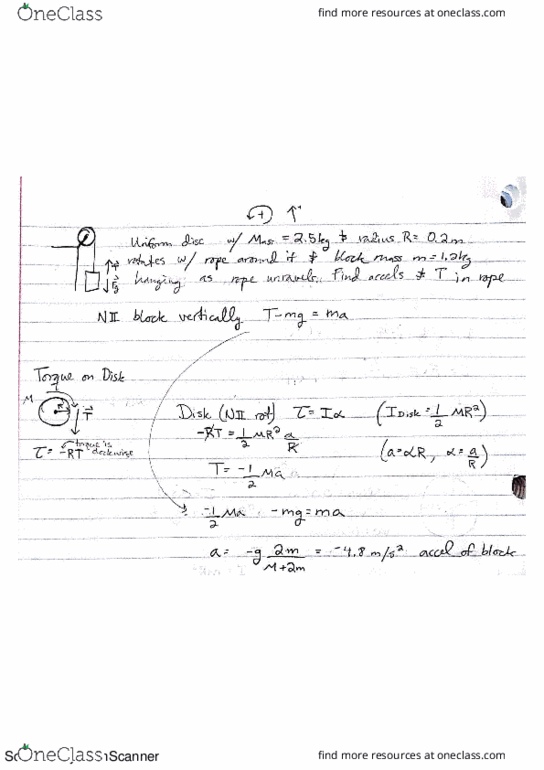 OneClass
find more resources at oneclass.com
Uniform disc w/ Mass = 2.5kg & radius R = 0.2m
rotates w/ rope around it & block mass m = 1.2kg
hanging as rope unravels. Find accels & T in rope
NII block vertically T-mg = ma
Torque on Disk
M
R
T
τ = -RT torque is clockwise
Disk (NII rot) τ = Iα (I Disk = 1/2 MR²)
-RT = 1/2 MR² a/R (a = αR, α = a/R)
T = -1/2 Ma
-1/2 Ma - mg = ma
a = -g 2m/M+2m = -4.8 m/s² accel of block
OneClass
Scanner
find more resources at oneclass.com